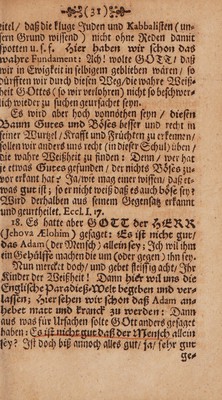 (31)
titel/ daß die kluge Juden und Kabbalisten (un-
sern Grund wissend) nicht ohne Reden damit
spotten u. s. f. Hier haben wir schon das
wahre Fundament: Ach! wolte GOTT/ daß
wir in Ewigkeit in selbigem geblieben wären/ so
dürfften wir durch diesen Weg/ die wahre Weiß-
heit GOttes (so wir verlohren) nicht so beschwer-
lich wieder zu suchen geurſacht seyn.
Es wird aber hoch vonnöthen seyn/ diesen
Baum Gutes und Böses besser und recht in
seiner Wurtzel/ Krafft und Früchten zu erkennen/
sollen wir anders uns recht (in dieser Schul) üben/
die wahre Weißheit zu finden: Denn/ wer hat
je etwas Gutes gefunden/ der nichts Böses zu-
vor erkant hat? Ja wir mag einer wissen/ daß et-
was gut ist; so er nicht weiß/ daß es auch böse sey?
Wird derhalben aus seinem Gegensatz erkannt
und geurtheilet, Eccl. I, 17.
18. Es hatte aber GOTT der HERR
(Jehova Ælohim) gesaget: Es ist nicht gut/
das Adam (der Mensch) allein sey; Ich wil ihm
ein Gehülffe machen die um (oder gegen) ihn sey.
Nun mercket doch/ und gebet fleissig acht/ Ihr
Kinder der Weißheit! Dann hier wil uns die
Englische Paradieß-Welt begeben und ver-
lassen; Hier sehen wir schon daß Adam an-
hebet matt und kranck zu werden: Dann
aus was für Ursachen solte GOtt anders gesaget
haben: Es ist nicht gut daß der Mensch allein
sey? Ist doch biß annoch alles gut/ ja/ sehr gut
ge-